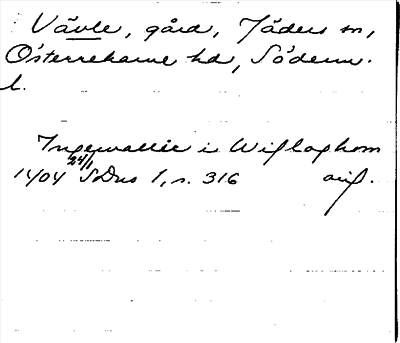 Vävle, gård, Jäders sn,
Österrekarne hd, Söderm.
l.
Ingewallie i Wiflaghom
1404 24/1 SDns 1, s. 316 orig.